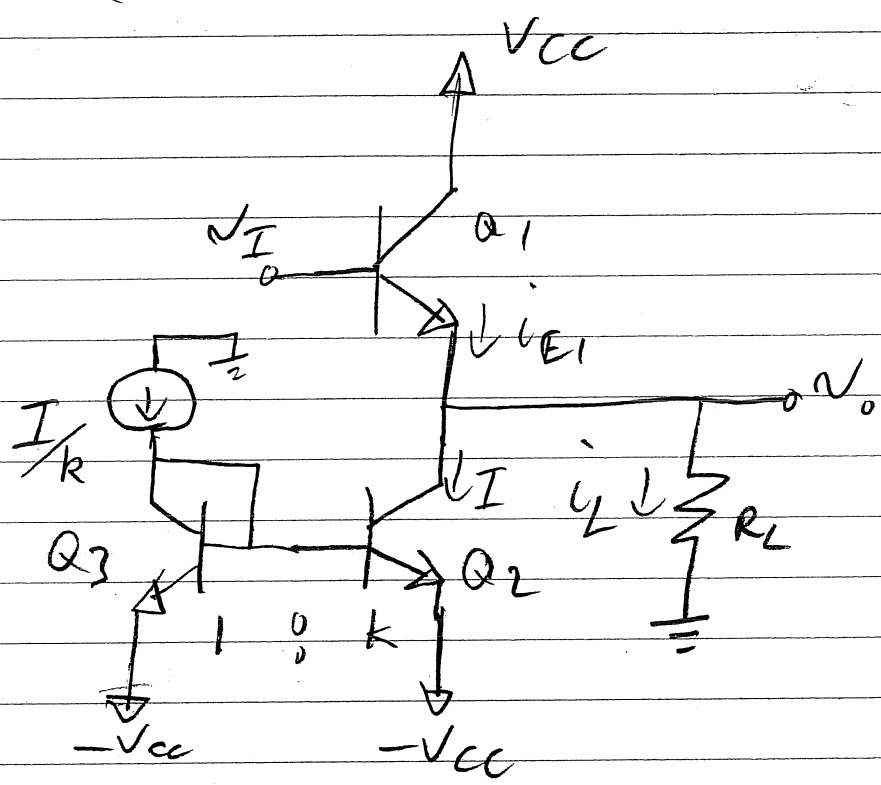 VCC
vI
Q1
iE1
I/k
vo
I
iL
RL
Q3
Q2
1 : k
-Vcc
-VCC